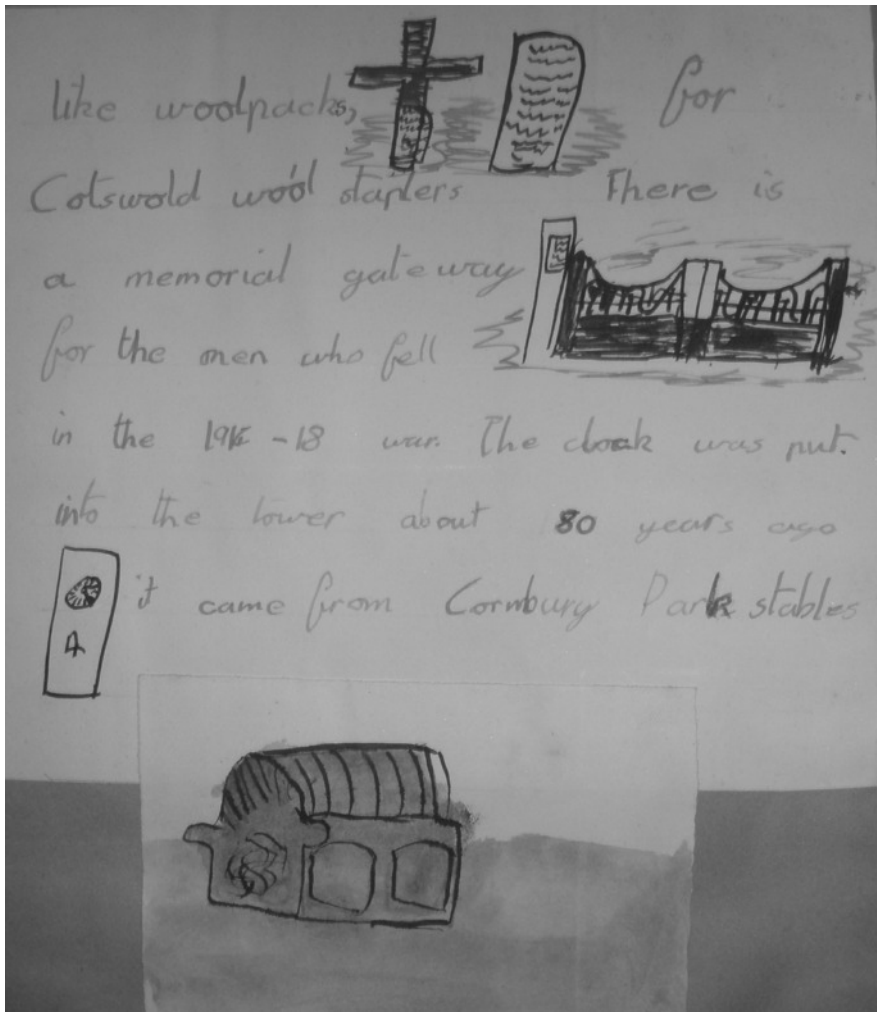 like woolpacks, for
Cotswold wool staplers There is
a memorial gateway
for the men who fell
in the 1914-18 war. The clock was put.
into the tower about 80 years ago
it came from Cornbury Park stables